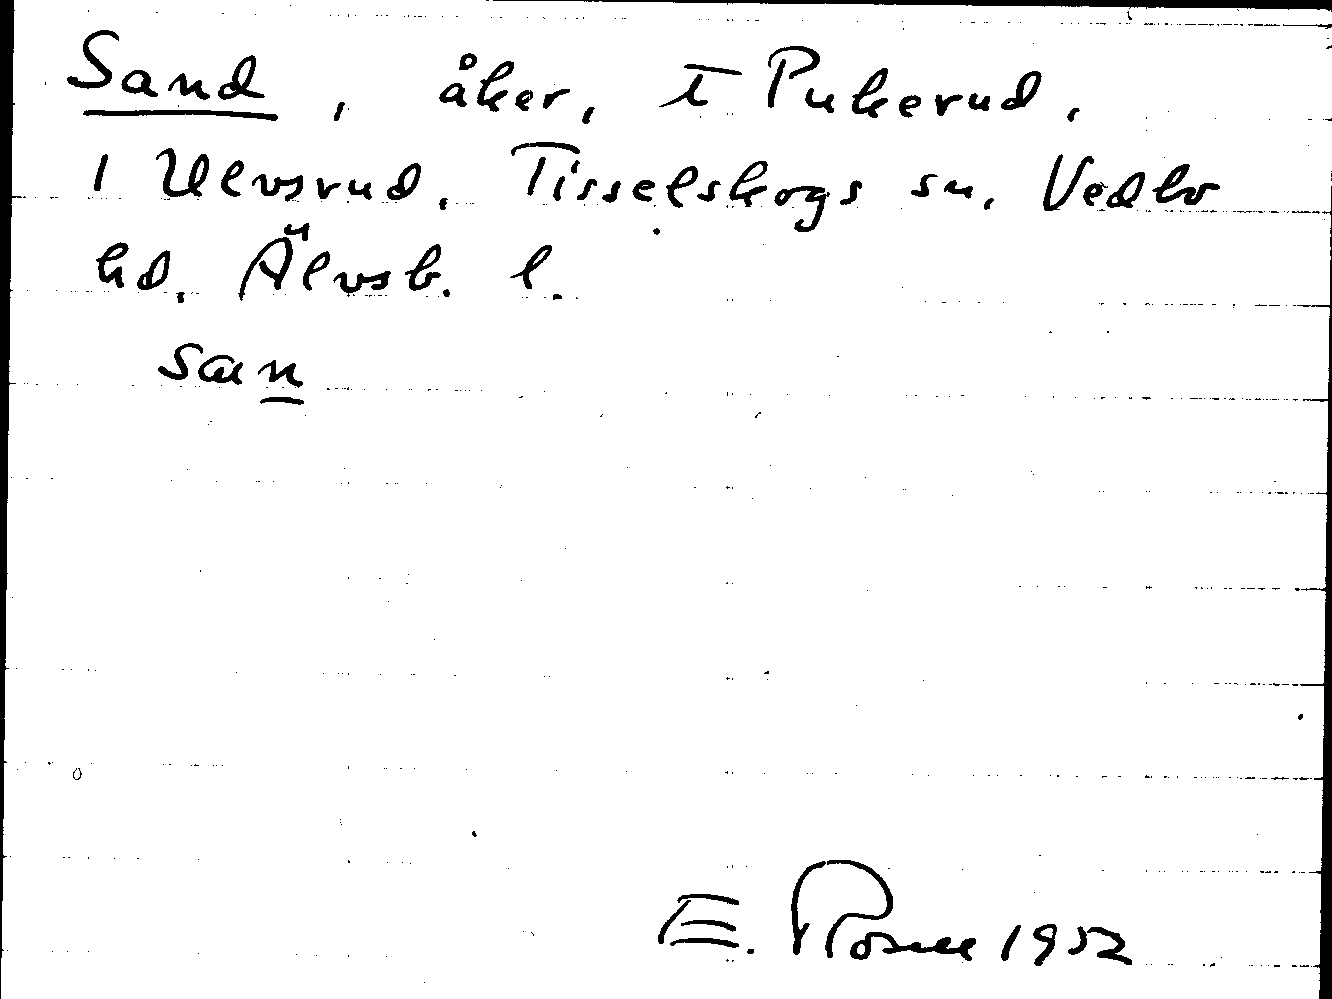 Sand, åker, t Pukerud,
1 Ulvsrud, Tisselskogs sn, Vedbo
hd, Älvsb. l.
san
E. Rosell 1952